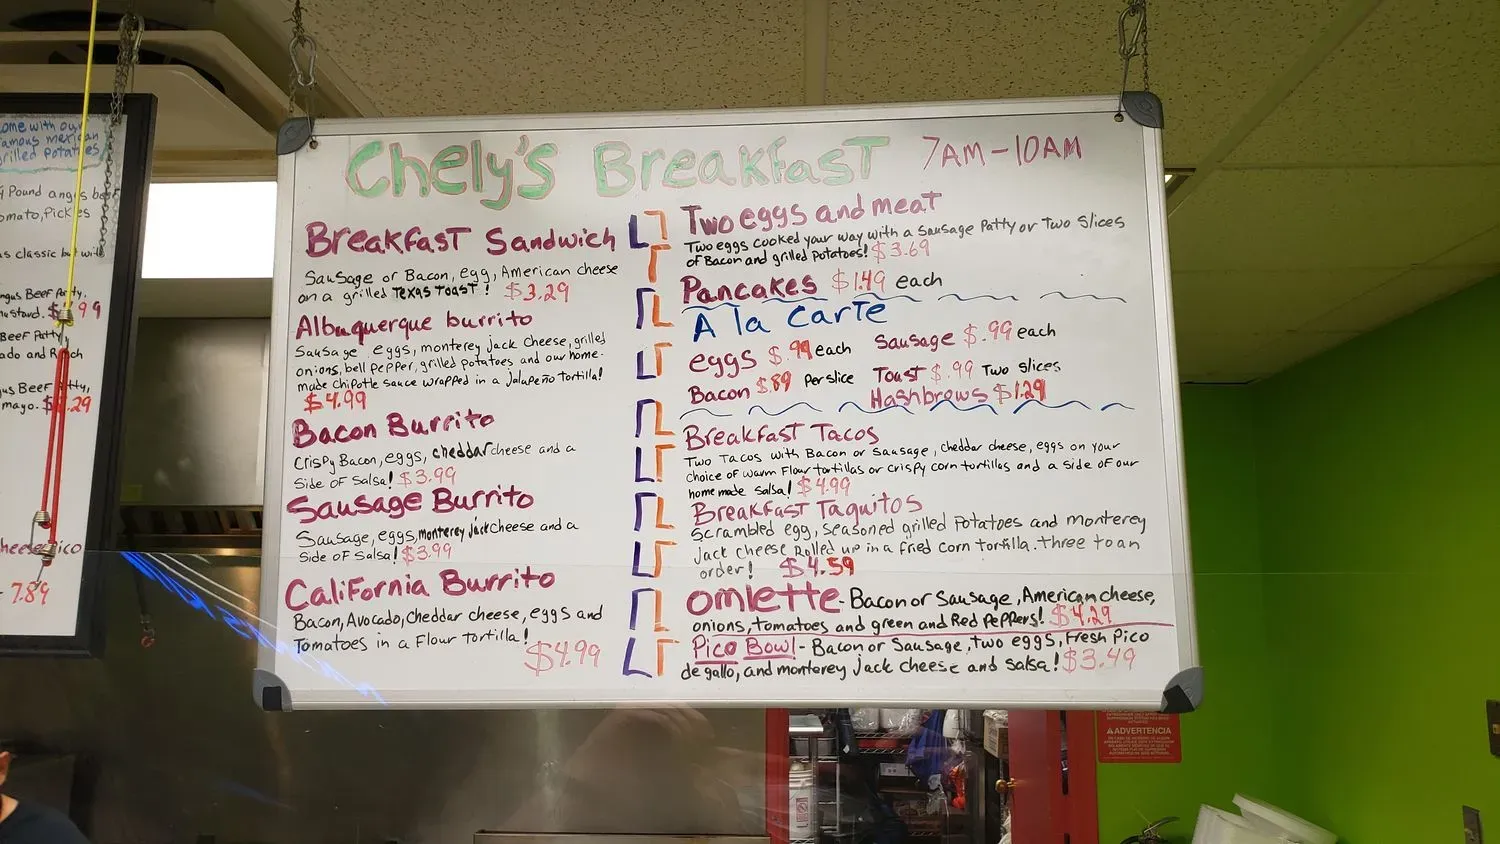 Chely's Breakfast 7AM-10AM
Breakfast Sandwich
Sausage or Bacon, egg, American cheese
on a grilled Texas Toast! $3.29
Albuquerque burrito
Sausage eggs, monterey Jack cheese, grilled
onions, bell pepper, grilled potatoes and our home-
made chipotle sauce wrapped in a jalapeño tortilla!
$4.99
Bacon Burrito
Crispy Bacon, eggs, cheddar cheese and a
side of salsa! $3.99
Sausage Burrito
Sausage, eggs, monterey jack cheese and a
side of salsa! $3.99
California Burrito
Bacon, Avocado, Cheddar cheese, eggs and
Tomatoes in a flour tortilla!
$4.99
Two eggs and meat
Two eggs cooked your way with a sausage Patty or Two Slices
of Bacon and grilled potatoes! $3.69
Pancakes $1.49 each
A la Carte
eggs $.99 each Sausage $.99 each
Bacon $.89 per slice Toast $.99 Two slices
Hashbrows $1.29
Breakfast Tacos
Two Tacos with Bacon or Sausage, cheddar cheese, eggs on your
choice of warm Flour tortillas or crispy corn tortillas and a side of our
home made salsa! $4.99
Breakfast Taquitos
Scrambled egg, seasoned grilled potatoes and monterey
Jack cheese Rolled up in a fried corn tortilla. Three to an
order! $4.59
Omlette - Bacon or Sausage, American cheese,
onions, tomatoes and green and Red Peppers! $4.29
Pico Bowl - Bacon or Sausage, Two eggs, Fresh Pico
de gallo, and monterey jack cheese and salsa! $3.49
ome with our
famous mexican
grilled potatoes
Pound angus beef
omato, Pickles
s classic but with
ngus Beef Patty,
ustard. $ 99
Beef Patty
ado and Ranch
gus Beef Patty,
mayo. $ .29
heese, Pico
7.89
ADVERTENCIA